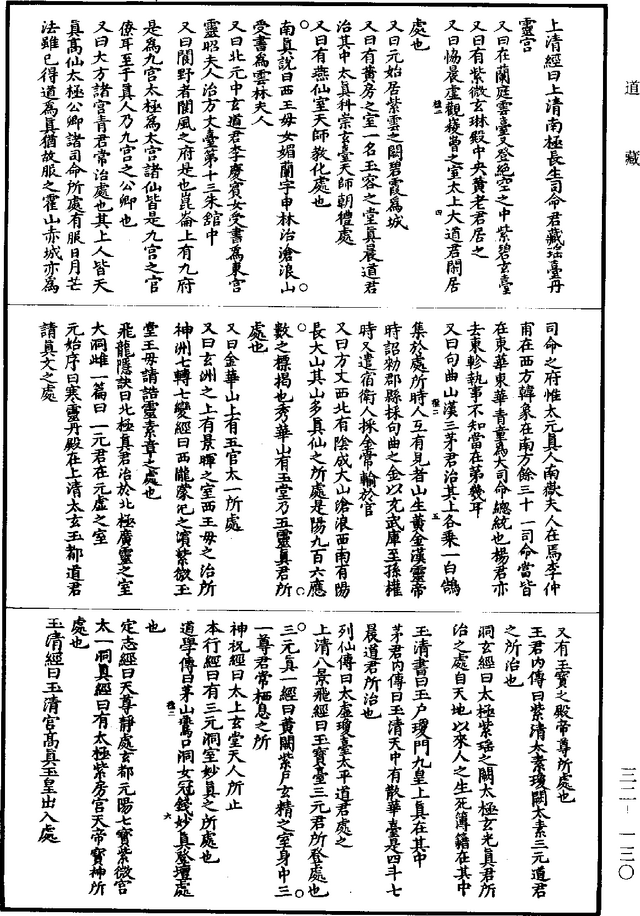 道藏
上清經曰上清南極長生司命君藏瑤臺丹
靈宮
又曰在蘭庭雲臺又登絕空之中紫碧玄臺
又曰有紫微玄琳殿中央黃老君居之
又曰恊晨虛觀椄當之室太上大道君閑居
處也
又曰元始居紫雲之闕碧霞爲城
又曰有黄房之室一名玉容之堂真晨道君
治其中太真科崇玄臺天師朝禮處
又曰有燕仙室天師教化處也
南真說曰西王母女媚蘭字申林治滄浪山
受書爲雲林夫人
又曰北元中玄道君李慶賓女受書爲東宮
靈昭夫人治方丈臺第十三朱舘中
又曰閬野者閬風之府是也崑崙上有九府
是爲九宮太極爲太宮諸仙皆是九宮之官
僚耳至于真人乃九宮之公卿也
又曰大方諸宮青君常治處也其上人皆天
真髙仙太極公卿諸司命所處有服日月芒
法雖已得道爲真猶故服之霍山赤城亦爲
司命之府惟太元真人南嶽夫人在焉李仲
甫在西方韓衆在南方餘三十一司命當皆
在東華東華青童爲大司命總統也楊君亦
去東軫執事不知當在第幾耳
又曰句曲山漢三茅君治其上各乗一白鵠
集於處所時人互有見者山生黄金漢靈帝
時詔勑郡縣採句曲之金以充武庫至孫權
時又遣宿衛人採金常輸於官
又曰方丈西北有陰成大山滄浪西南有陽
長大山其山多真仙之所處是陽九百六應
數之標揭也秀華山有玉堂乃五靈真君所
處也
又曰金華山上有五官太一所處
又曰玄洲之上有景暉之室西王母之治所
神洲七轉七變經曰西龍蒙汜之濱紫微玉
堂王母請誥靈素章之處也
飛龍隱訣曰北極真君治於北極廣靈之室
大洞雌一篇曰一元君在元虛之室
元始序曰寒靈丹殿在上清太玄玉都道君
請真文之處
又有玉寶之殿帝尊所處也
王君内傳曰紫清太素瓊闕太素三元道君
之所治也
洞玄經曰太極紫瑤之闕太極玄光真君所
治之處自天地以來人之生死簿籍在其中
玉清書曰玉户瓊門九皇上真在其中
茅君内傳曰玉清天中有散華臺是四斗七
晨道君所治也
列仙傳曰太虛瓊臺太平道君處之
上清八景飛經曰玉寶臺三元君所登處也
三元真一經曰黄闕紫户玄精之室身中三
一尊君常栖息之所
神祝經曰太上玄堂天人所止
本行經曰有三元洞室妙真之所處也
道學傳曰茅山鷰口洞女冠錢妙真登壇處
也
定志經曰天尊靜處玄都元陽七寶紫微宮
太一洞真經曰有太極紫房宮天帝寶神所
處也
玉清經曰玉清宮髙真玉皇出入處
三二-一三〇